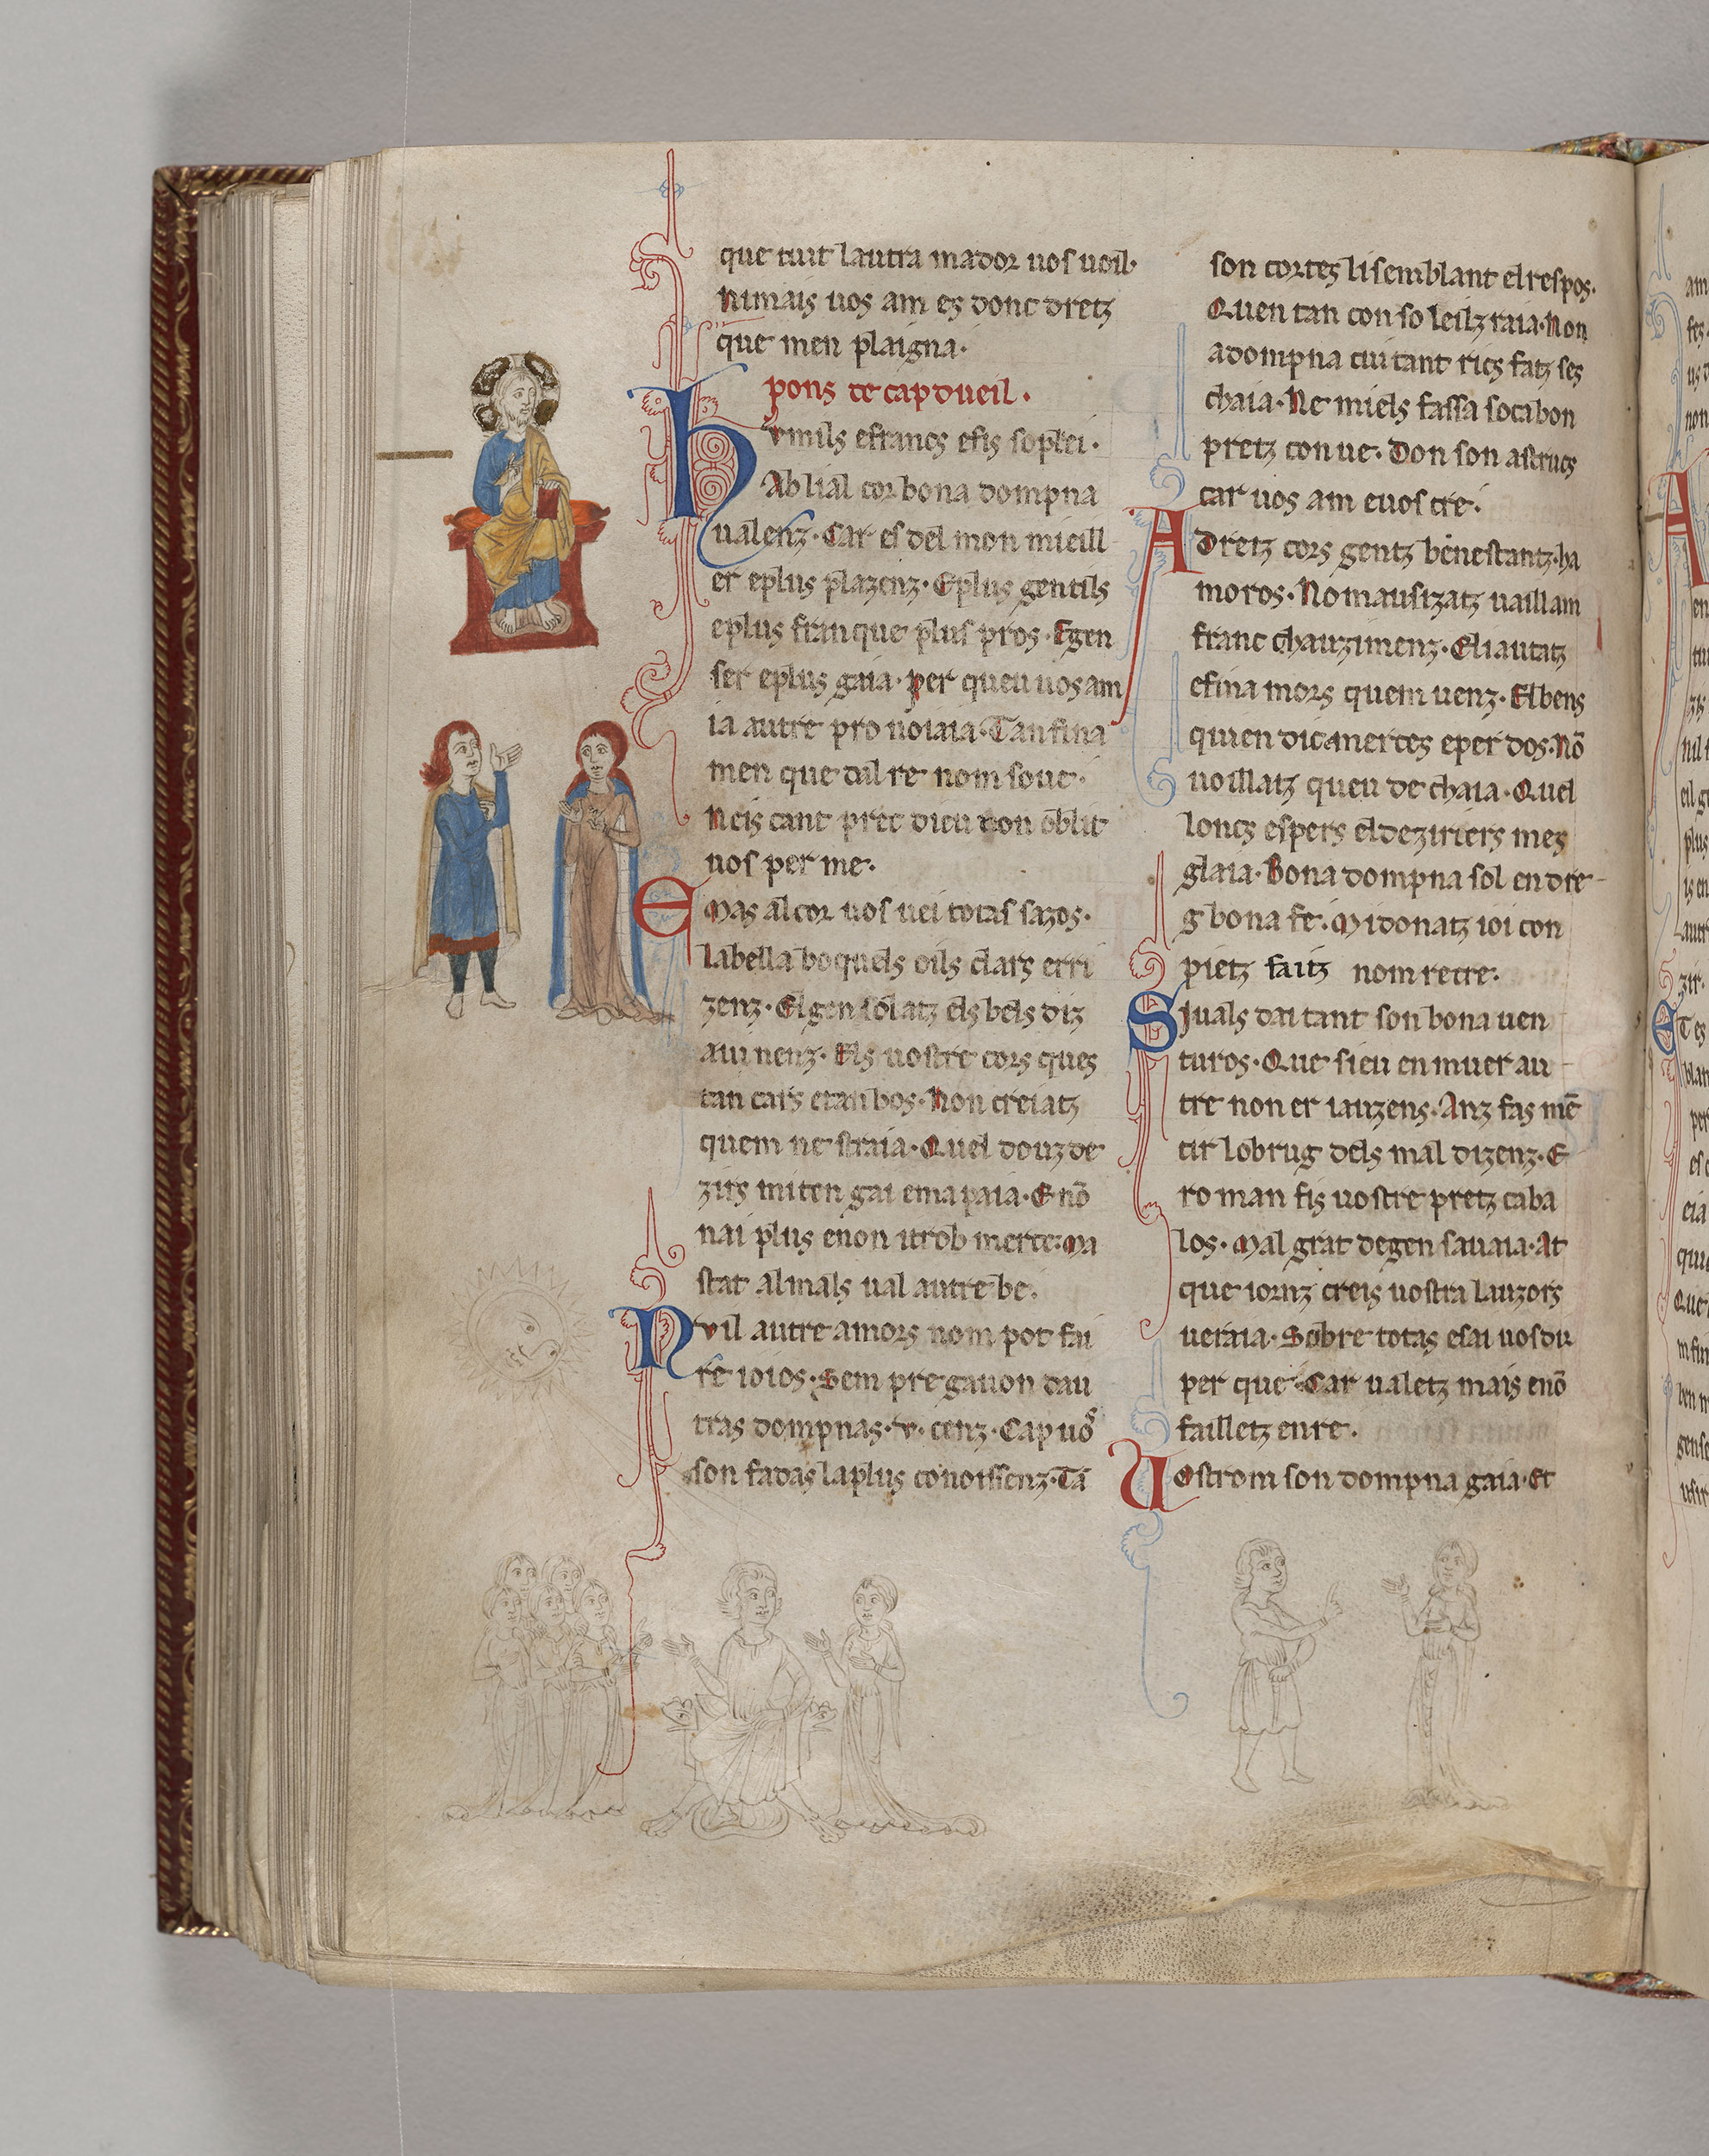 que tuit lautra mador uos uoil·
Nimais uos am es donc dretz
que men plaigna·
pons de capdueil·
humils efrancs efis soplei·
Ab lial cor bona dompna
ualenz· Car es del mon mieill
er eplus plazenz· Eplus gentils
eplus franque plus pros· Egen
ser eplus gaia· per queu uos am
ia autre pro noiaia· Tan fina
men que dal re nom soue·
Neis cant prec dieu non oblit
uos per me·
Emas al cor uos uei totas sazos·
labella boquels oils clars erri
zenz· El gen solatz els bels diz
auinenz· Els uostre cors ques
tan cars etan bos· Non creiatz
quem ne straia· Quel douz de
zirs miten gai emapaia· E nō
nai plus enon itrob merce· Ma
stat al mals ual autre be·
Nuil autre amors nom pot fai
re ioios· Sem pregauon dau
tras dompnas·v· cenz· Cap uos
son fadas laplus conoissenz· Tā
son cortes lisemblant elrespos·
Quen tan con soleilz raia· Non
a dompna cui tant rics fatz ses
chaia· Ne miels fassa socabon
pretz conue· Don son astrucs
car uos am euos cre·
Adretz cors gentz benestantz· ha
moros· No mausizatz uaillam
franc chauzimenz· Eliautatz
efina mors quem uenz· Elbens
quien dic amerces eper dos· Nō
uoillatz queu de chaia· Quel
loncs espers eldezirers mes
glaia· Bona dompna sol endre
g bona fe· Mi donatz ioi con
pietz faitz nom recre·
Siuals dai tant son bona uen
turos· Que sieu en muer au
tre non er iauzens· Anz fas mē
tir lobrug dels mal dizenz· E
ro man fis uostre pretz caba
los· Mal grat degen sauaia· At
que iornz creis uostra lauzors
ueraia· Sobre totas esai uos du
per que· Car ualetz mais enō
failletz enre·
Uostrom son dompna gaia· Et